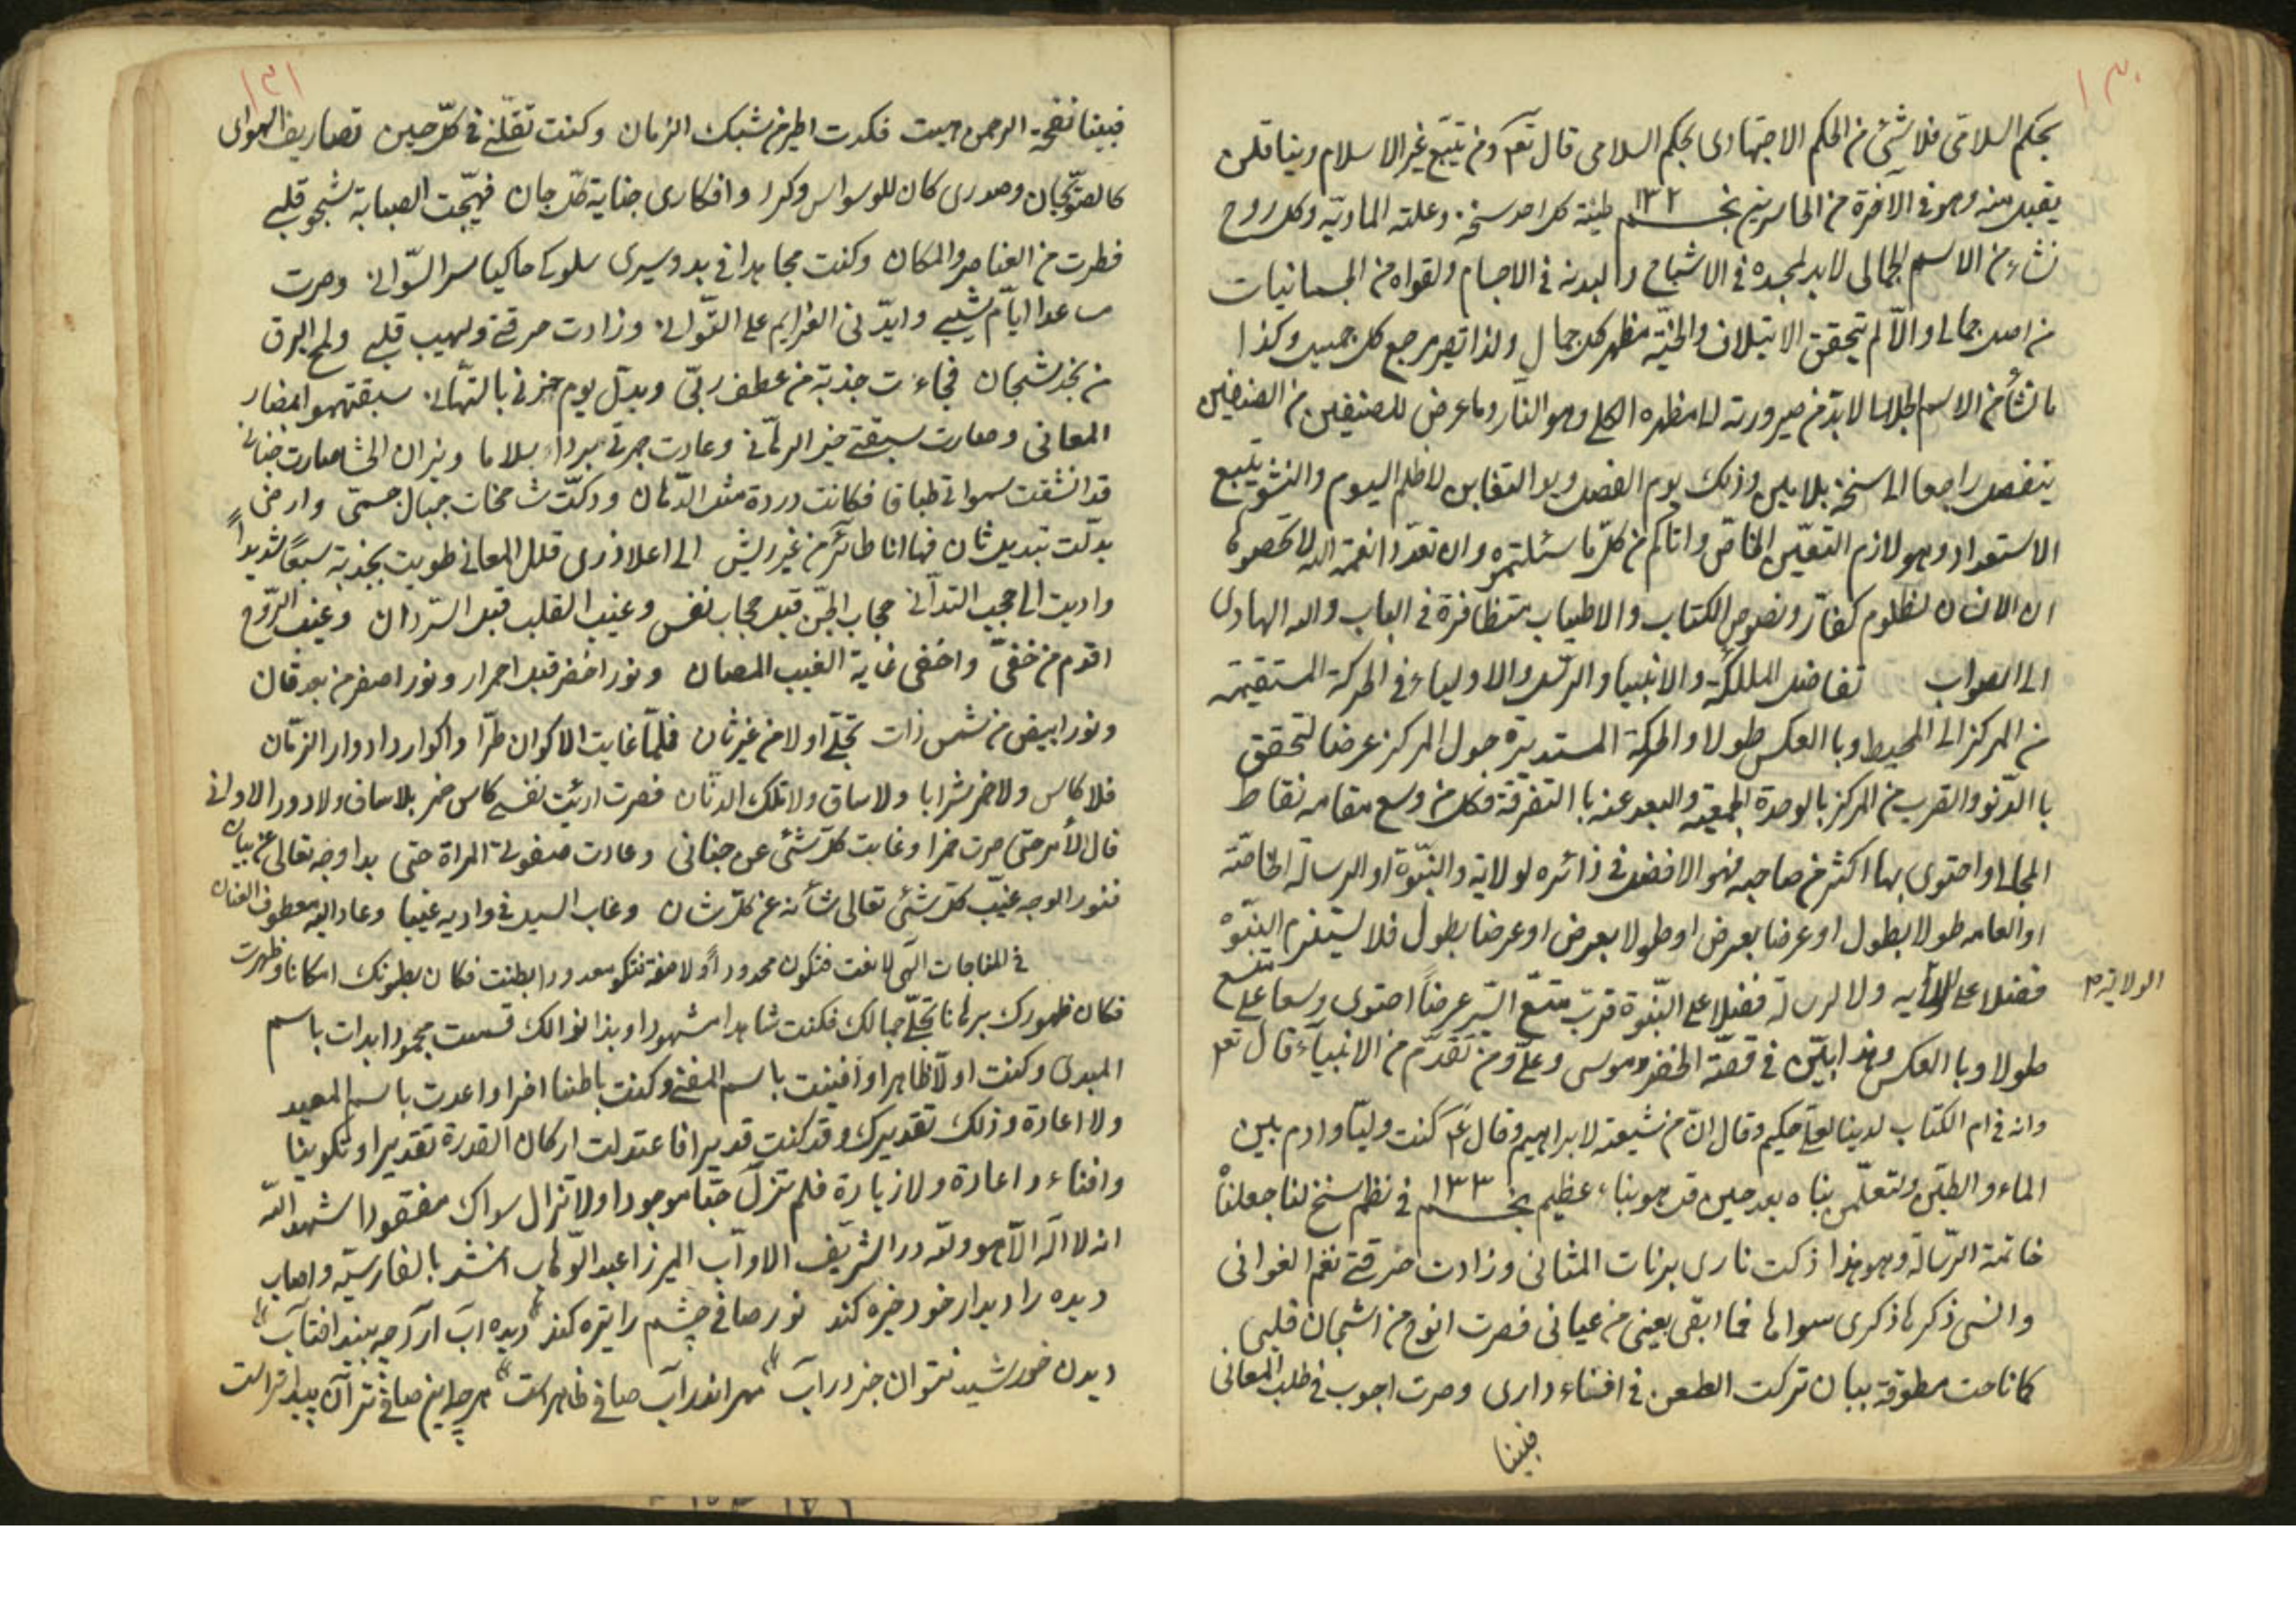 ١٣٠
بحكم السلامى فلا شئ من الحكم الاجتهادى بحكم السلامى قال تعم ومن يتبع غير الاسلام دينا فلن
يقبل منه وهو فى الآخرة من الخاسرين نجـــم ١٣٢ طينة كل احد سنخه وعلته المادية وكل روح
نشاء من الاسم الجمالى لابد لجسده فى الاشباح والبدنه فى الاجسام ولقواه من الجسمانيات
من اصل جمالى والا لم يتحقق الايتلاف والجنة مظهر كل جمال ولذا تصير مرجع كل جميل وكذا
ما نشأ من الاسم الجلال لابد من صيرورته الى مظهره الكلى وهو النار وما عرض للصنفين من الصنفين
ينفصل راجعا الى سنخه بلا بلبس وذلك يوم الفصل ويوم التغابن لا ظلم اليوم والنشو يتبع
الاستعداد وهو لازم التعين الخاص واتاكم من كل ما سئلتموه وان تعدوا نعمة الله لا تحصوها
ان الانسان لظلوم كفار ونصوص الكتاب والاطياب متظافرة فى الباب والله الهادى
الى الصواب تفاضل الملائكة والانبيا والرسل والاولياء فى الحركة المستقيمة
من المركز الى المحيط وبا العكس طولا والحركة المستديرة حول المركز عرضا لتحقق
با الدنو والقرب من المركز بالوحدة الجمعية والبعد عنه با التفرقة فكل من وسع مقامه نقاط
المجال او احتوى بها اكثر من صاحبه فهو الافضل فى دائره لولاية والنبوة او الرسالة الخاصة
او العامه طولا بطول او عرضا بعرض او طولا بعرض او عرضا بطول فلا يستلزم النبوة
فضلا على الولاية ولا الرسالة فضلا على النبوة فرب متسع السير عرضا احتوى وسعا على متسع
الولاية م
طولا وبا العكس وهذا يبين فى قصة الخضر وموسى وعلى ومن تقدم من الانبياء قال تعم
وانه فى ام الكتاب لدينا لعلى حكيم وقال ان من شيعته لابراهيم وقال ع كنت وليا وادم بين
الماء والطين ولتعلمن نباه بعد حين قل هو نباء عظيم نجـــم ١٣٣ فى نظم سنح لنا جعلناه
خاتمة الرسالة وهو هذا ذكت نارى برنات المثانى وزادت حرقتى نغم الغوانى
وانسى ذكرها ذكرى سواها فما ابقى بعينى من عيانى فصرت انوح من اشجان قلبى
كما ناحت مطوقة ببان تركت الطعن فى افناء دارى وصرت اجوب فى طلب المعانى
فبينا
١٣١
فبينا نفحة الرحمن هبت فكدت اطير من شبك الزمان وكنت تقلنى فى كل حين تصاريف الهواى
كالصولجان وصدرى كان للوسواس وكرا وافكارى جناية كل جان فهيجت الصبابة شجو قلبى
فطرت من العناصر والمكان وكنت مجاهدا فى بدو سيرى سلوكى حاكيا سر السوانى وصرت
ساعدا ايام شيبى وايدنى الغرايم على التوانى وزادت حرقتى ولهيب قلبى ولمح البرق
من نجد شجان فجاءت جذبة من عطف ربى وبدل يوم حزنى بالتهانى سبقتهموا بمضار
المعانى وصارت سبقتى خير الرهانى وعادت جمرتى بردا سلاما ونيران الحشا صارت جنانى
قد انشقت سمواتى طباقا فكانت وردة مثل الدهان ودكت شامخات جبال جسمى وارضى
بدلت تبديل شان فها انا طائر من غير ريش الى اعلا ذرى قلل المعانى طويت بجذبة سبعا شديدا
واديت الى حجب التدانى حجاب الجن قبل حجاب نفس وغيب القلب قبل السر دان وغيب الروح
اقدم من خفى واخفى غاية الغيب المصان ونور اخضر قبل احمرار ونور اصفر من بعد قان
ونور ابيض من شمس ذات تجلى اولا من غير ثان فلما غابت الاكوان طرا واكوار وادوار الزمان
فلا كاس ولا خمر شرابا ولا ساق ولا تلك الدنان فصرت ارئيت نفسى كاس خمر بلا ساق ولا دور الاوانى
فال الأمر حتى صرت خمرا وغابت كل شئ عن جنانى وعادت صيقولى المراة حتى بدا وجه تعالى عن بيان
فنور الوجه غيب كل شئ تعالى شأنه عن كل شان وغاب السيل فى واديه غيبا وعاد اليه معطوف العنان
فى المناجات الهى لا نعت فتكون محدودا ولا صفة فتكون معدودا بطنت فكان بطونك امكانا وظهرت
فكان ظهورك برهانا تجلى جمالك فكنت شاهدا مشهودا وبذا نوالك قسمت بجودا بدات باسم
المبدئ وكنت اولا ظاهرا وافنيت باسم المفنى وكنت باطنا اخرا واعدت باسم المعيد
ولا اعادة وذلك تقديرك وقد كنت قديرا فاعتدلت اركان القدرة تقديرا وتكوينا
وافناء واعادة ولا زيادة فلم تزل حقا موجودا ولا تزال سواك مفقودا شهد الله
انه لا اله الا هو ولله در الشريف الاواب الميرزا عبد الوهاب انشد بالفارسية واصاب
ديده را ديدار خود خيره كند نور صافى چشم را تيره كند ديده اب ار چه بيند افتاب
ديدن خورشيد نتوان جز در آب مهر اندر آب صافى ظاهر است هر چه اين صافى تر آن پيدا تر است